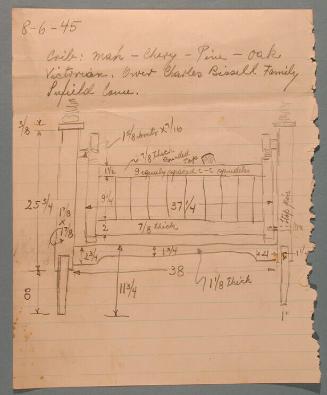 8-6-45
Crib: mah - Chery - Pine - oak
Victorian. Owner Charles Bissell Family
Sufield Conn.
3/8
1 5/8 Dowels x 7/16
7/8 thick
Rounded
Top
1 1/2
9 equally spaced c-c spindles
25 3/4
1 7/8
x
1 7/8
9 1/4
37 1/4
2
7/8 thick
slip pin
2 3/4
1 3/4
4
1 1/4
38
8
11 3/4
1 1/8 thick
1"